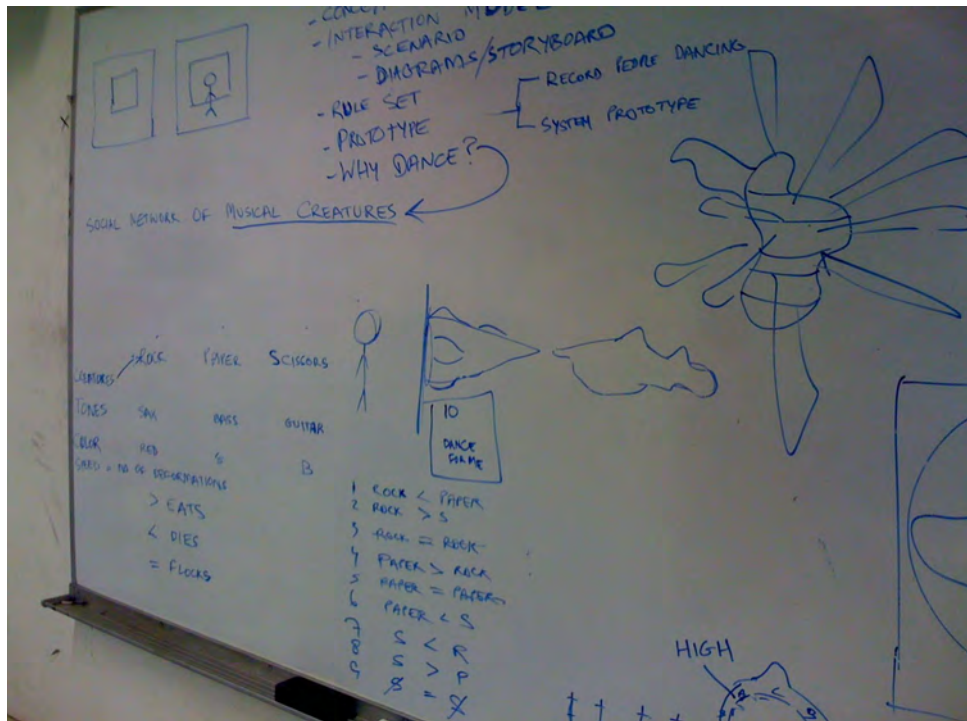 - INTERACTION
- SCENARIO
- DIAGRAMS/STORYBOARD
- RULE SET
- PROTOTYPE
RECORD PEOPLE DANCING
SYSTEM PROTOTYPE
- WHY DANCE?
SOCIAL NETWORK OF MUSICAL CREATURES
CREATURES ROCK PAPER SCISSORS
TONES SAX BASS GUITAR
COLOR RED G B
= NO OF DEFORMATIONS
> EATS
< DIES
= FLOCKS
10
DANCE
FOR ME
1 ROCK < PAPER
2 ROCK > S
3 ROCK = ROCK
4 PAPER > ROCK
5 PAPER = PAPER
6 PAPER < S
7 S < R
8 S > P
9 S = S
HIGH